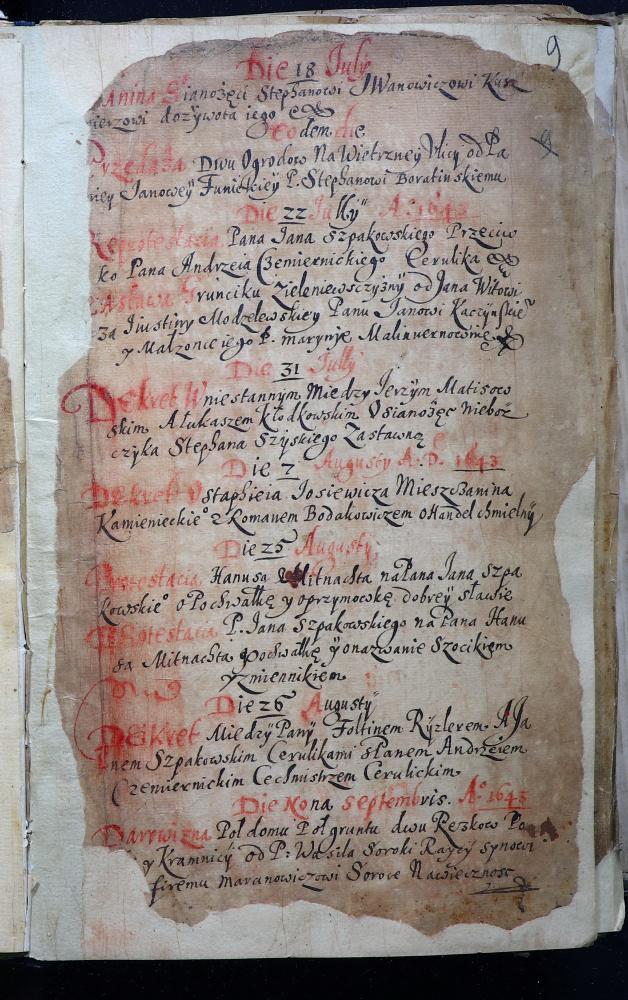 9
Die 18 July
anina Sianożęci Stephanowi IWanowiczowi Kusz
nierzowi dozywota iego
Eodem die
Przedaża Dwu Ogrodow Na Wietrzney Vlicy od Pa
niey Janowey Funickiey P. Stephanowi Boratinskiemu
Die 22 July Aº 1643
Reprotestatia Pana Jana Szpakowskiego Przeciw
ko Pana Andrzeia Czemiernickiego Cerulika
Zastawa Grunciku Zieleniewsczyżny od Jana Witowi
za Iiustiny Modzelewskiey Panu Janowi Kaczynskie
y Małzonce iego P. marynie
Die 31 July
Dekret W niestannym Miedzy Jerzym Matisow
skim A Łukaszem Kłodkowskim O sianożęc Nieboż
czyka Stephana Szyskiego Zastawną
Die 7 Augusty A. D. 1643
Dekret Ostaphieia Josiewicza Miesczanina
Kamienieckieº z Romanem Bodakowiczem o Handel chmielny
Die 25 Augusty
Protestacia Hanusa Mitnachta na Pana Jana Szpa
kowskieº o Pochwałkę y oprzymowkę dobrey sławie
Protestacia P. Jana Szpakowskiego na Pana Hanu
sa Mitnachta o Pochwałkę y onazwanie Szocikiem
y zmiennikiem
Die 26 Augusty
Dekret Miedzy Pany Foltinem Ryzlerem A Ja
nem Szpakowskim Cerulikami s Panem Andrzeiem
Czemiernickim Cechmistrzem Cerulickim
Die Nona Septembris. Aº 1643
Darowizna Poł domu Poł gruntu dwu Rezkow
y Kramnicy od P: Wasila Soroki Raycy synowi
firemu marcinowiczowi Soroce Nawiecznosc